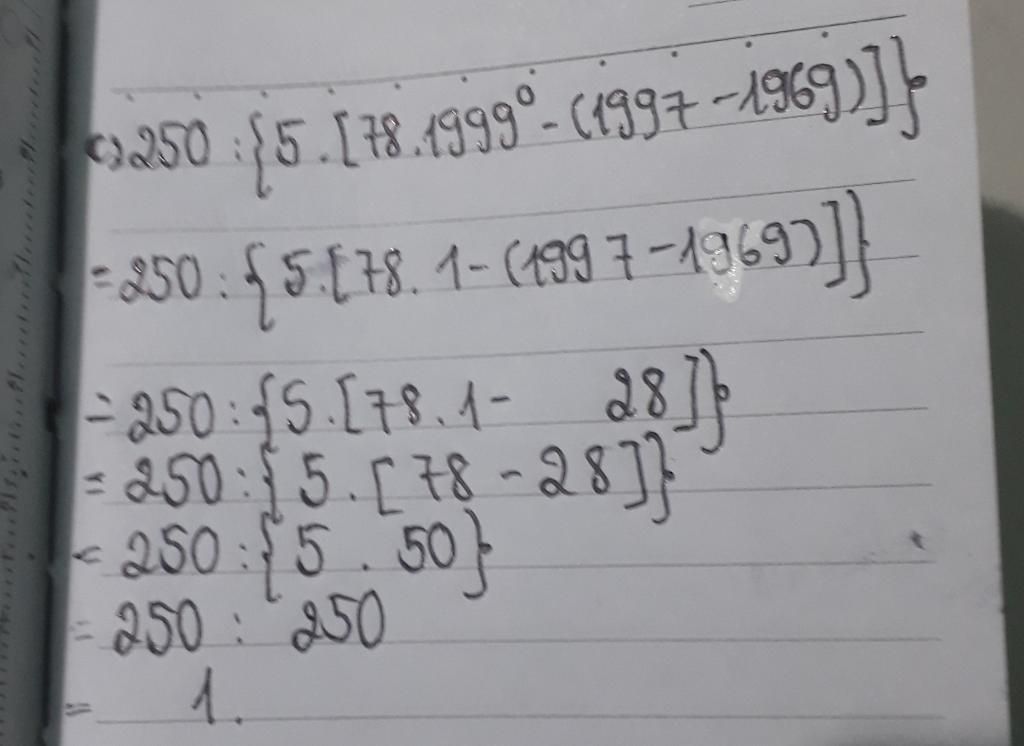 c) 250 : {5 . [78 . 1999⁰ - (1997 - 1969)]}
= 250 : {5 . [78 . 1 - (1997 - 1969)]}
= 250 : {5 . [78 . 1 - 28]}
= 250 : {5 . [78 - 28]}
= 250 : {5 . 50}
= 250 : 250
= 1.